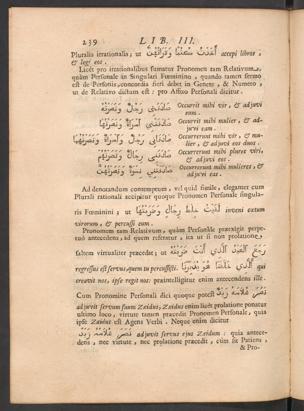 239 LIB. III.
Pluralis irrationalis; ut أَخَذْتُ سَعْنَهَا وَقَرَأْتُهَا accepi libros,
& legi eos.
Licèt pro irrationalibus sumatur Pronomen tam Relativum,
quàm Personale in Singulari Fœminino, quando tamen sermo
est de Personis, concordia fieri debet in Genere, & Numero,
ut de Relativo dictum est: pro Affixo Personali dicitur.
صَادَفَنِي رَجُلٌ وَنَصَرْتُهُ Occurrit mihi vir, & adjuvi
eum.
صَادَفَتْنِي اِمْرَأَةٌ وَنَصَرْتُهَا Occurrit mihi mulier, & ad-
juvi eam.
صَادَفَنِي رَجُلٌ وَاِمْرَأَةٌ وَنَصَرْتُهُمَا Occurrerunt mihi vir, & mu-
lier, & adjuvi eos duos.
صَادَفَنِي رِجَالٌ وَنَصَرْتُهُمْ Occurrerunt mihi plures viri,
& adjuvi eos.
صَادَفَتْنِي نِسْوَةٌ وَنَصَرْتُهُنَّ Occurrerunt mihi mulieres, &
adjuvi eas.
Ad denotandum contemptum, vel quid simile, eleganter cum
Plurali rationali accipitur quoque Pronomen Personale singula-
ris Fœminini; ut لَقِيتُ خِلْطَ رِجَالٍ وَضَرَبْتُهَا inveni extum
virorum, & percussi eum.
Pronomen tam Relativum, quàm Personale præcipit perpe-
tuò antecedens, ad quem refertur, ita ut si non prolatione,
saltem virtualiter præcedat; ut رَجَعَ الْعَبْدُ الَّذِي أَنْتَ ضَرَبْتَهُ
regressus est servus, quem tu percussisti. الَّذِي خَلَقَنَا هُوَ يُدَبِّرُنَا qui
creavit nos, ipse regit nos: præintelligitur enim antecedens ille.
Cum Pronomine Personali dici quoque potest نَصَرَ غُلَامَهُ زَيْدٌ
adjuvit servum suum Zeidus, Zeidus enim licèt prolatione ponatur
ultimo loco, virtute tamen præcedit Pronomen Personale, quia
ipse Zaidus est Agens Verbi. Neque enim dicitur
نَصَرَ غُلَامُهُ زَيْدًا adjuvit servus ejus Zeidum: quia antece-
dens, nec virtute, nec prolatione præcedit, cùm sit Patiens,
& Pro-